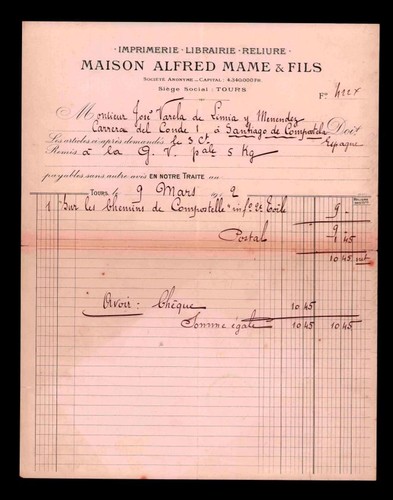 IMPRIMERIE - LIBRAIRIE - RELIURE
MAISON ALFRED MAME & FILS
SOCIÉTÉ ANONYME - CAPITAL : 4.340.000 FR.
Siège Social : TOURS
Fo
Monsieur José Varela de Limia y Menendez
Carrera del Conde 1, à Santiago de Compostela Doit
Les articles ci-après demandés le 3 Ct Espagne
Remis à la G. V. pale 5 Kg
payables sans autre avis EN NOTRE TRAITE au
TOURS, le 9 Mars 191 2
1 Sur les Chemins de Compostelle in fo 2e Toile 9 -
9 -
Postal 1 45
10 45 net
Avoir : Chèque 10 45
Somme égale 10 45 10 45